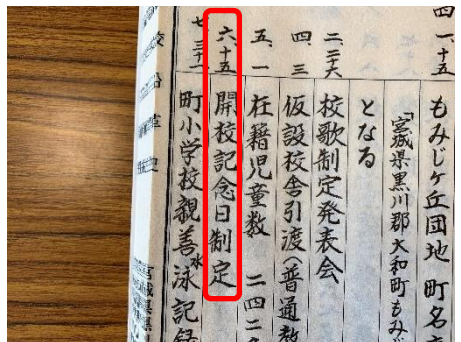 四 一・十五 もみじケ丘団地 町名
「宮城県黒川郡大和町もみ
となる
二・二十六 校歌制定発表会
四・三 仮設校舎引渡(普通教
五・一 在籍児童数 二四二名
六・十五 開校記念日制定
七・三十一 町小学校親善水泳記録
校沿革史